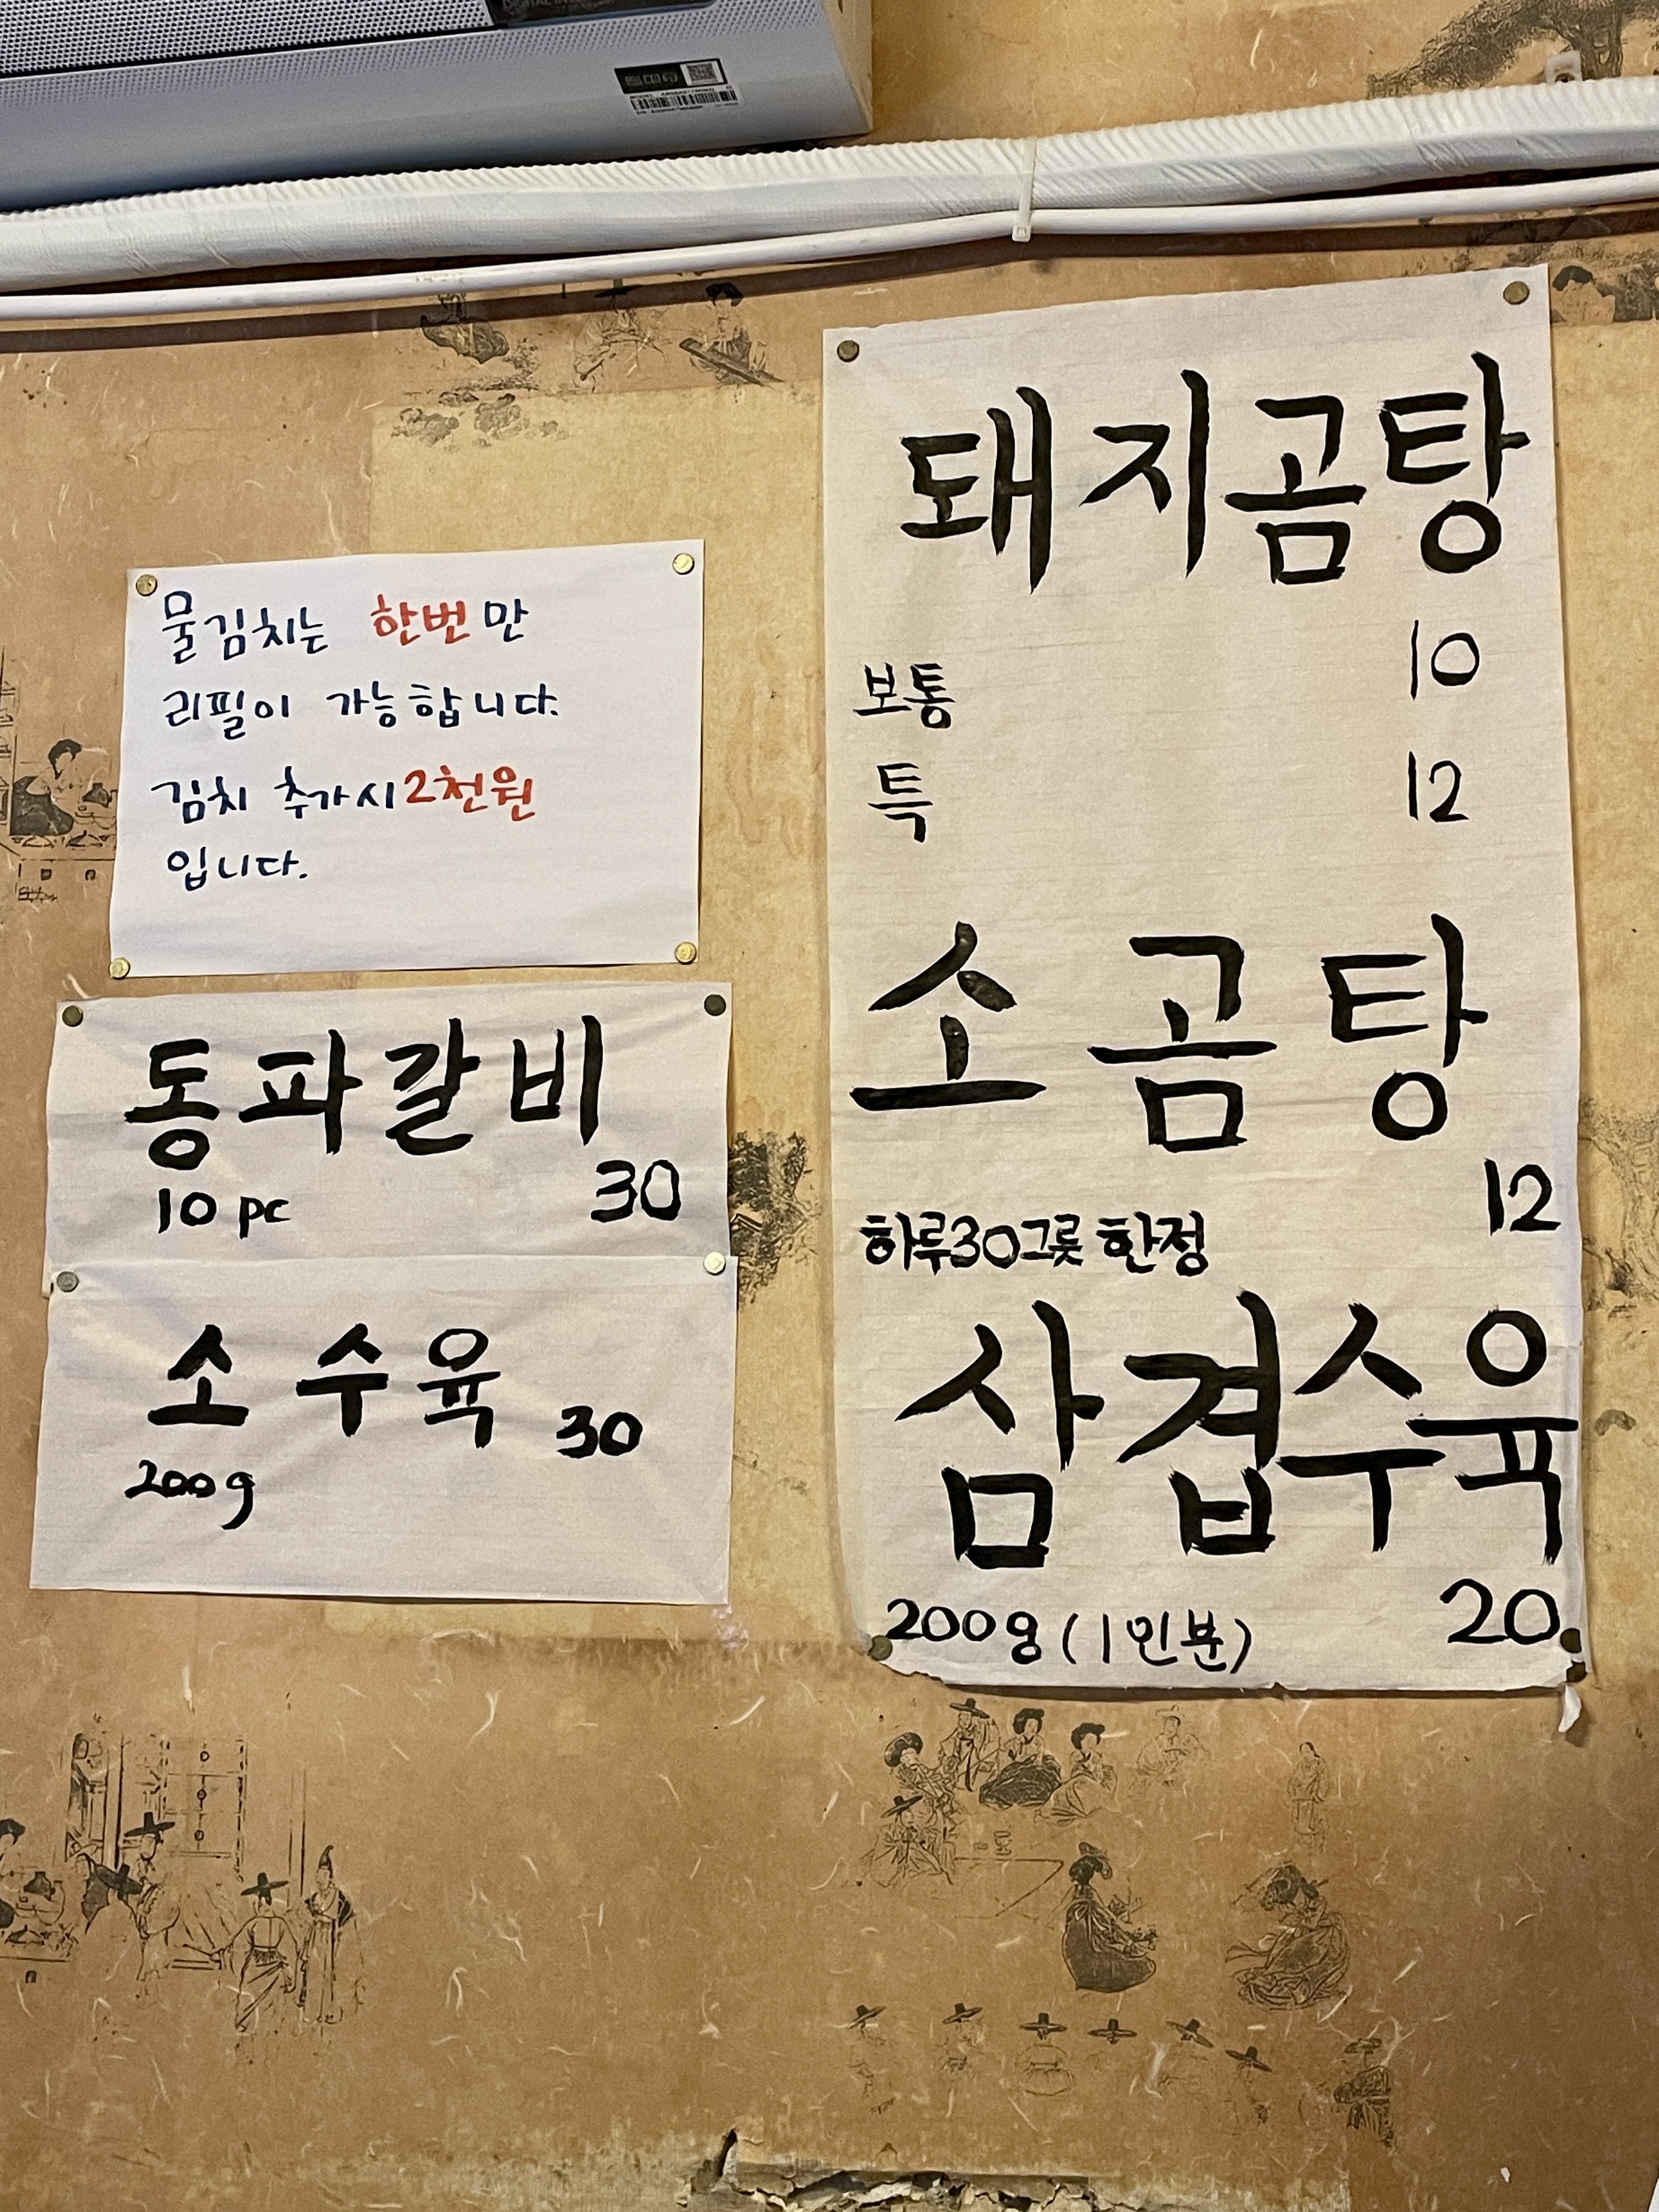 물김치는 한번만
리필이 가능합니다.
김치 추가시 2천원
입니다.
동파갈비
10 pc 30
소수육
30
200g
돼지곰탕
보통 10
특 12
소곰탕
12
하루30그릇 한정
삼겹수육
200g (1인분) 20